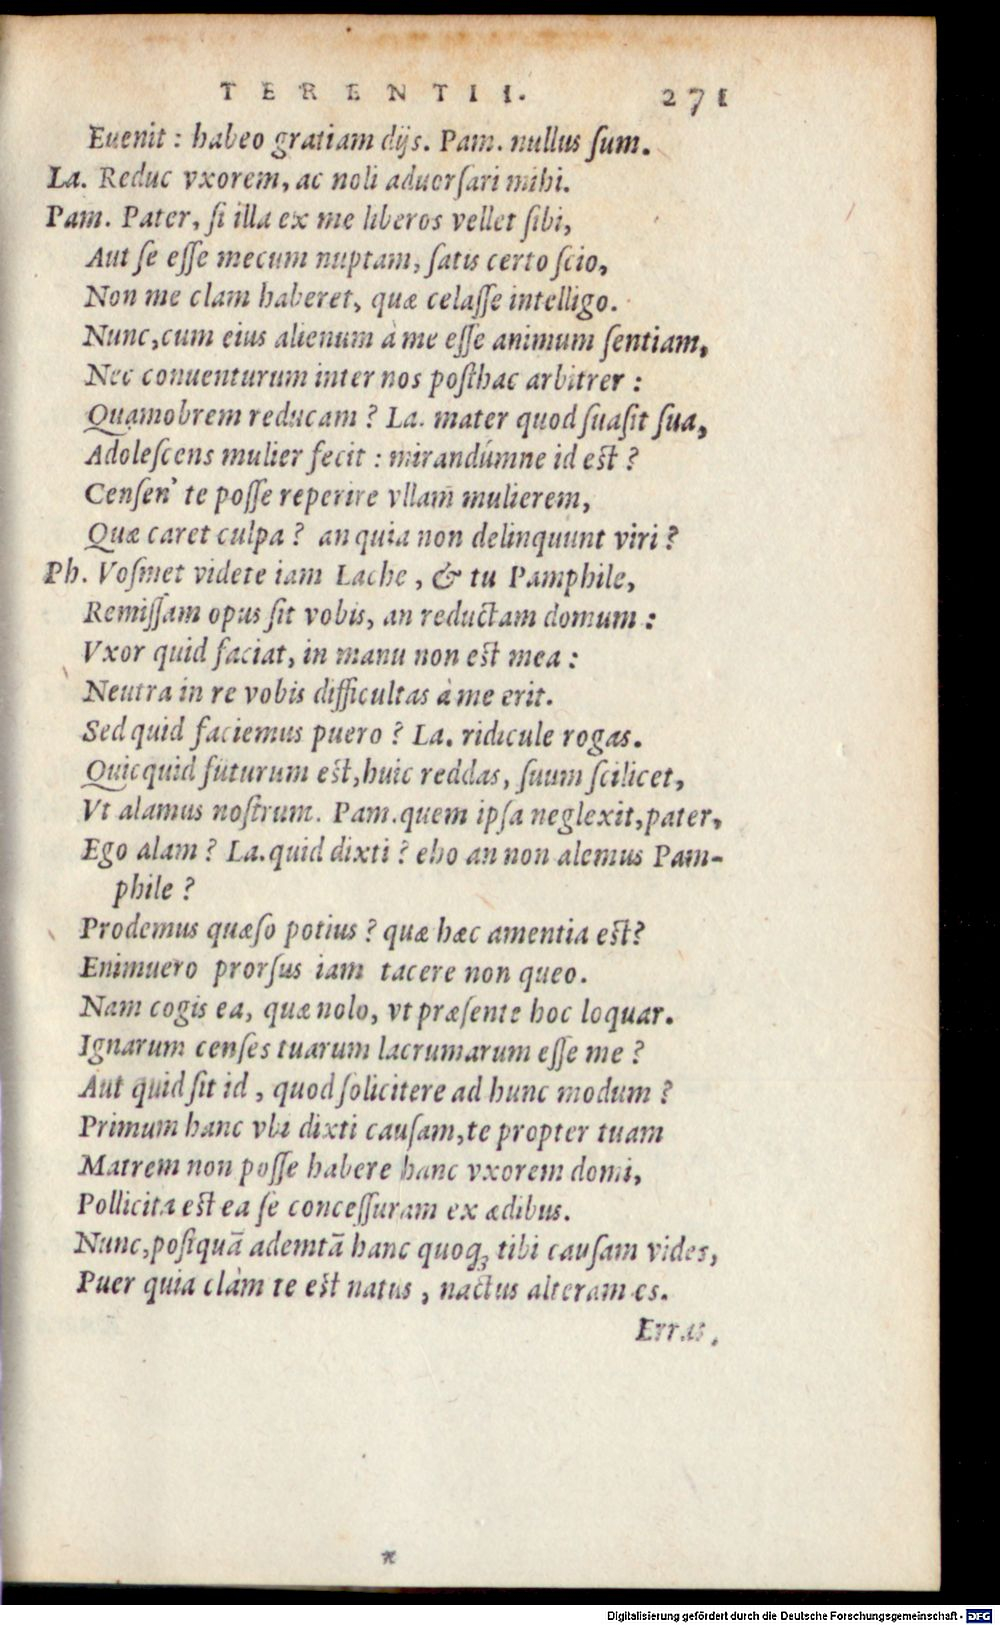 TERENTII. 271
Euenit : habeo gratiam dijs. Pam. nullus ſum.
La. Reduc vxorem, ac noli aduerſari mihi.
Pam. Pater, ſi illa ex me liberos vellet ſibi,
Aut ſe eſſe mecum nuptam, ſatis certo ſcio,
Non me clam haberet, quæ celaſſe intelligo.
Nunc,cum eius alienum à me eſſe animum ſentiam,
Nec conuenturum inter nos poſthac arbitrer :
Quamobrem reducam ? La. mater quod ſuaſit ſua,
Adoleſcens mulier fecit : mirandúmne id eſt ?
Cenſen' te poſſe reperire vllam̃ mulierem,
Quæ caret culpa ? an quia non delinquunt viri ?
Ph. Voſmet videte iam Lache , & tu Pamphile,
Remiſſam opus ſit vobis, an reductam domum :
Vxor quid faciat, in manu non eſt mea :
Neutra in re vobis difficultas à me erit.
Sed quid faciemus puero ? La. ridicule rogas.
Quicquid futurum eſt,huic reddas, ſuum ſcilicet,
Vt alamus noſtrum. Pam.quem ipſa neglexit,pater,
Ego alam ? La.quid dixti ? eho an non alemus Pam-
phile ?
Prodemus quæſo potius ? quæ hæc amentia eſt?
Enimuero prorſus iam tacere non queo.
Nam cogis ea, quæ nolo, vt præſente hoc loquar.
Ignarum cenſes tuarum lacrumarum eſſe me ?
Aut quid ſit id , quod ſolicitere ad hunc modum ?
Primum hanc vbi dixti cauſam,te propter tuam
Matrem non poſſe habere hanc vxorem domi,
Pollicita eſt ea ſe conceſſuram ex ædibus.
Nunc,poſtquā ademtā hanc quoq; tibi cauſam vides,
Puer quia clàm te eſt natus , nactus alteram es.
Erras,
Digitalisierung gefördert durch die Deutsche Forschungsgemeinschaft - DFG